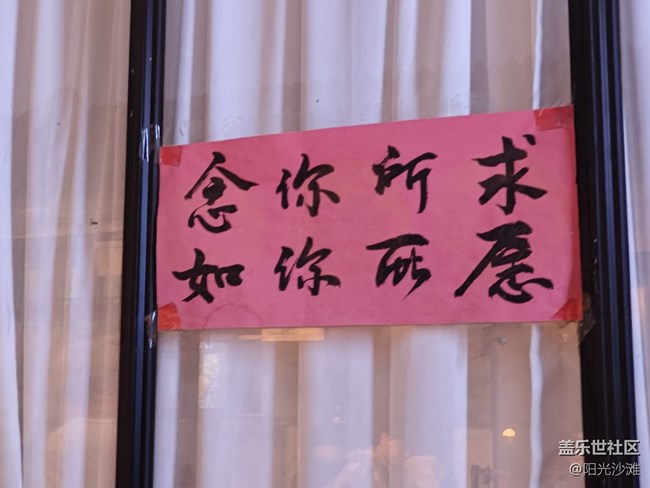 念你所求
如你所愿
盖乐世社区
@阳光沙滩